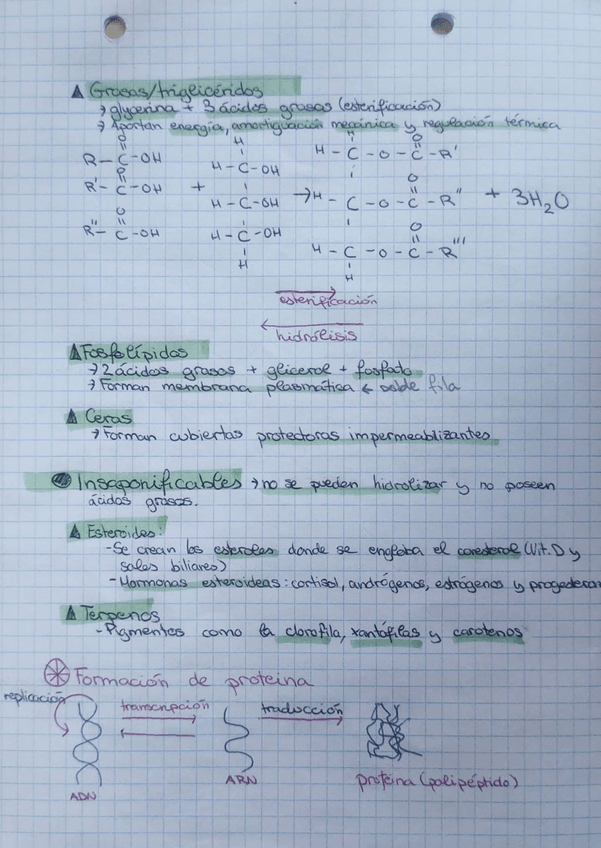 ▲ Grasas/trigliceridos
→ glycerina + 3 ácidos grasos (esterificación)
→ Aportan energía, amortiguación mecánica y regulación térmica
R-C-OH
O
R'-C-OH
O
R''-C-OH
O
+
H
H-C-OH
H-C-OH
H-C-OH
H
→
H
H-C-O-C-R'
O
H-C-O-C-R''
O
H-C-O-C-R'''
O
H
+ 3H2O
esterificación
hidrólisis
▲ Fosfolípidos
→ 2 ácidos grasos + glicerol + fosfato
→ Forman membrana plasmática ←
▲ Ceras
→ Forman cubiertas protectoras impermeablizantes
Insaponificables → no se pueden hidrolizar y no poseen
ácidos grasos.
▲ Esteroides:
-Se crean los esteroles donde se engloba el colesterol (Vit.D y
sales biliares)
-Hormonas esteroideas: cortisol, andrógenos, estrógenos y
▲ Terpenos
-Pigmentos como la clorofila, xantófilas y carotenos
Formación de proteina
replicación
transcripción
traducción
ADN
ARN
proteína (polipéptido)